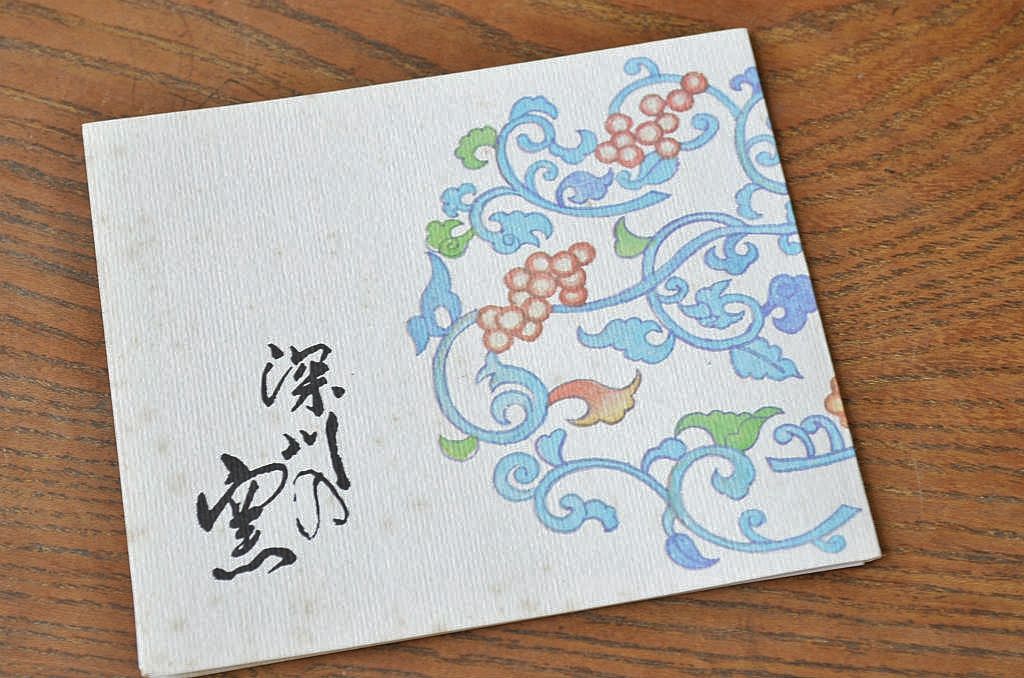 深川の
窯